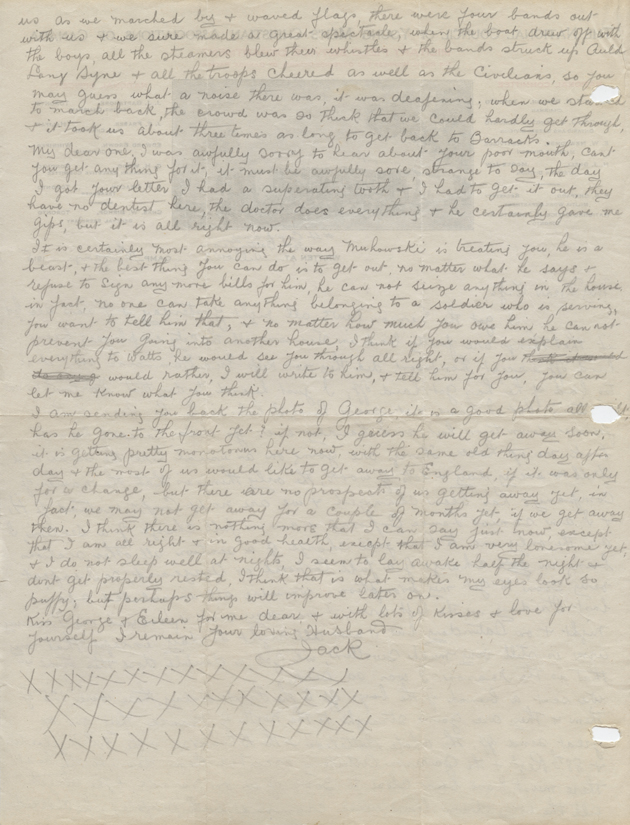 us as we marched by & waved flags, there were four bands out
with us & we sure made a great spectacle, when the boat drew off with
the boys, all the steamers blew their whistles & the bands struck up Auld
Lang Syne & all the troops cheered as well as the Civilians, so you
may guess what a noise there was, it was deafening, when we started
to march back, the crowd was so thick that we could hardly get through,
& it took us about three times as long to get back to Barracks.
My dear one, I was awfully sorry to hear about your poor mouth, cant
you get anything for it, it must be awfully sore, strange to say, the day
I got your letter I had a superating tooth & I had to get it out, they
have no dentist here, the doctor does everything & he certainly gave me
gips, but it is all right now.
It is certainly most annoying the way Muhowski is treating you, he is a
beast, & the best thing you can do is to get out, no matter what he says &
refuse to sign any more bills for him, he can not seize anything in the house
in fact, no one can take anything belonging to a soldier who is serving,
you want to tell him that, & no matter how much you owe him he can not
prevent you going into another house, I think if you would explain
everything to Watts he would see you through all right, or if you
would rather, I will write to him, & tell him for you, you can
let me know what you think.
I am sending you back the photo of George, it is a good photo all
has he gone to the front yet? if not, I guess he will get away soon.
it is getting pretty monotonous here now, with the same old thing day after
day & the most of us would like to get away to England, if it was only
for a change, but there are no prospects of us getting away yet, in
fact, we may not get away for a couple of months yet, if we get away
then. I think there is nothing more that I can say just now, except
that I am all right & in good health, except that I am very lonesome yet,
& I do not sleep well at nights, I seem to lay awake half the night &
dont get properly rested, I think that is what makes my eyes look so
puffy, but perhaps things will improve later one.
Kiss George & Eileen for me dear & with lots of kisses & love for
yourself I remain Your loving Husband
Jack
XXXXXXXXXXXXXX
XXXXXXXXXXXXXX
XXXXXXXXXXXXX